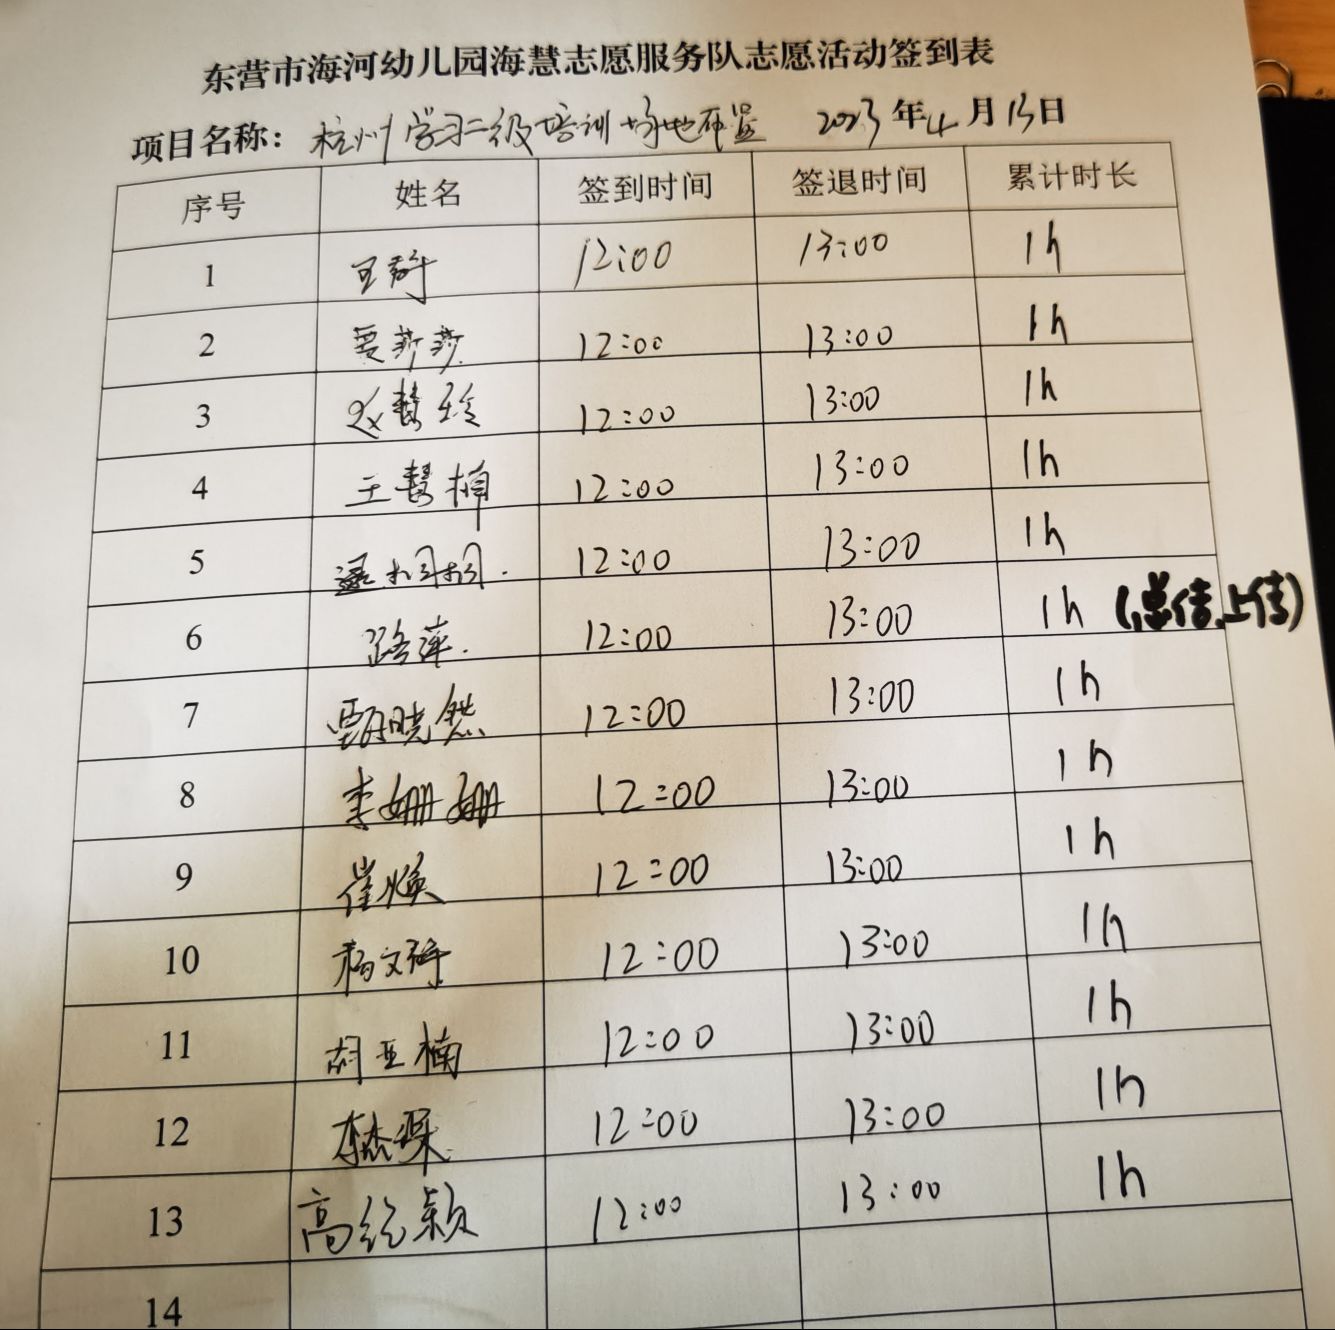 东营市海河幼儿园海慧志愿服务队志愿活动签到表
项目名称： 杭州学习二级培训场地布置 2023年4月13日
序号 姓名 签到时间 签退时间 累计时长
1 王群 12:00 13:00 1h
2 贾莎莎 12:00 13:00 1h
3 赵慧玲 12:00 13:00 1h
4 王慧楠 12:00 13:00 1h
5 12:00 13:00 1h
6 路萍 12:00 13:00 1h (总结、上传)
7 甄晓然 12:00 13:00 1h
8 李姗姗 12:00 13:00 1h
9 崔焕 12:00 13:00 1h
10 杨文琦 12:00 13:00 1h
11 胡亚楠 12:00 13:00 1h
12 12:00 13:00 1h
13 高纪颖 12:00 13:00 1h
14